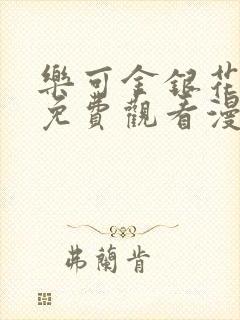 樂可金銀花
免費觀看漫
弗蘭肯